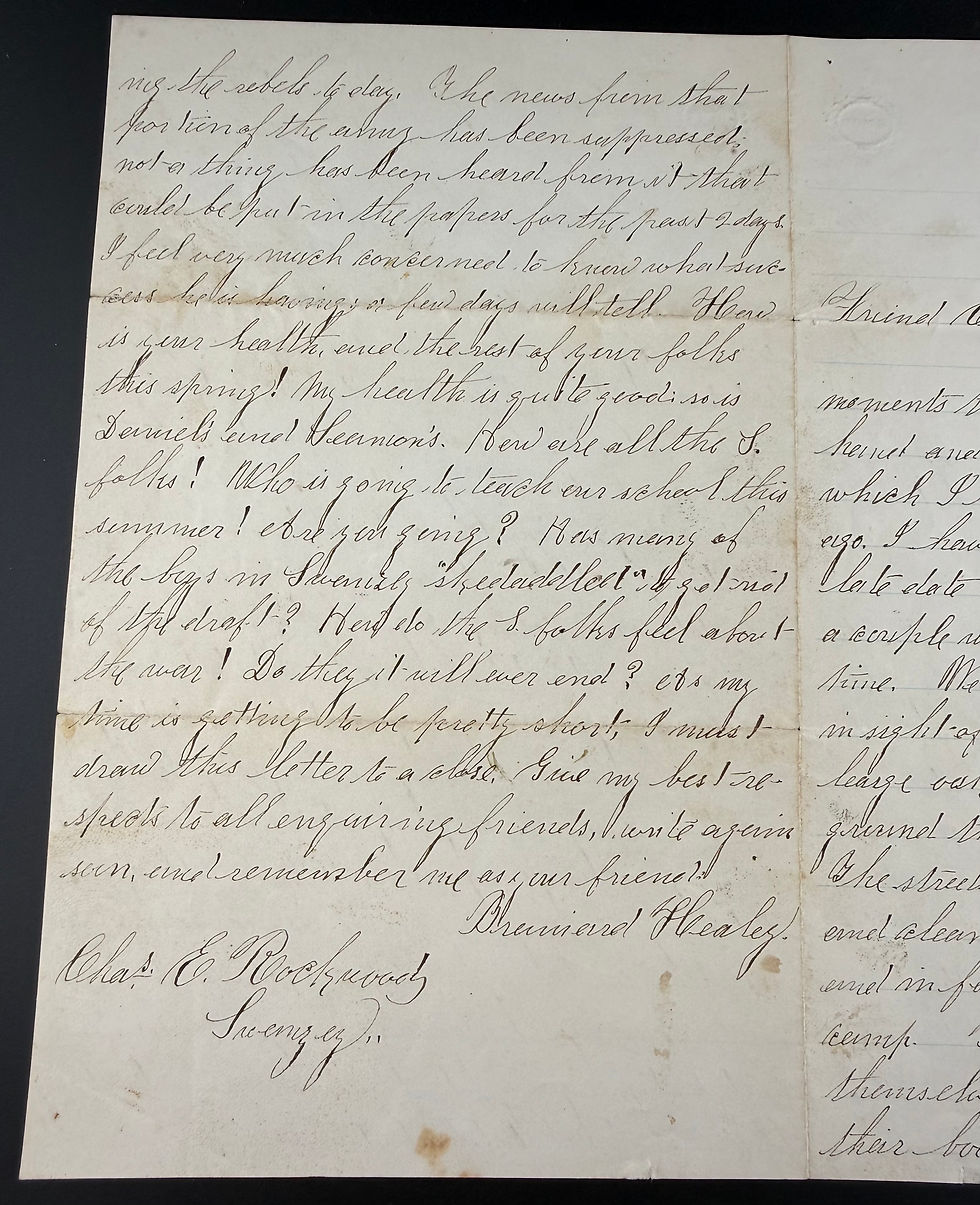 ing the rebels to day. The news from that
portion of the army has been suppressed;
not a thing has been heard from it that
could be put in the papers for the past 2 days.
I feel very much concerned to know what suc-
cess he is having; a few days will tell. How
is your health, and the rest of your folks
this spring! My health is quite good: so is
Daniel's and Leamon's. How are all the S.
folks! Who is going to teach our school this
summer! Are you going? Has many of
the boys in Swanzey "skedaddled" to get rid
of the draft? How do the S. folks feel about
the war! Do they it will ever end? As my
time is getting to be pretty short, I must
draw this letter to a close. Give my best re-
spects to all enquiring friends, write again
soon, and remember me as your friend.
Brainard Healey.
Chas. E. Rockwood
Swanzey.
Friend
moments
hand and
which I
ago. I hav
late date
a couple w
time. We
in sight of
large
ground th
The street
and clean
and in f
camp.
themselv
their bo